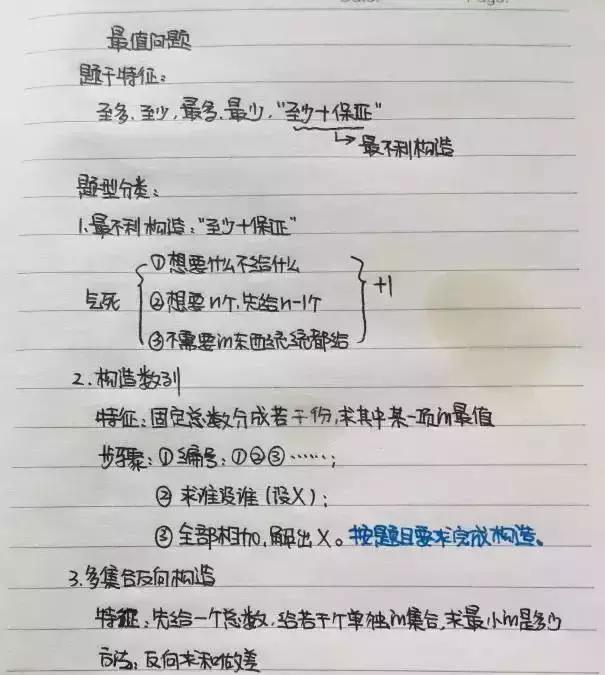 最值问题
题干特征:
至多,至少,最多,最少,"至少+保证"
↳最不利构造
题型分类:
1.最不利构造:"至少+保证"
①想要什么不给什么
气死 ②想要n个,先给n-1个 +1
③不需要的东西统统都给
2.构造数列
特征:固定总数分成若干份,求其中某一项的最值
步骤:①编号:①②③……;
②求谁设谁(设X);
③全部相加,解出X。按题目要求完成构造。
3.多集合反向构造
特征:先给一个总数,给若干个单独的集合,求最小的是多少
方法:反向求和做差